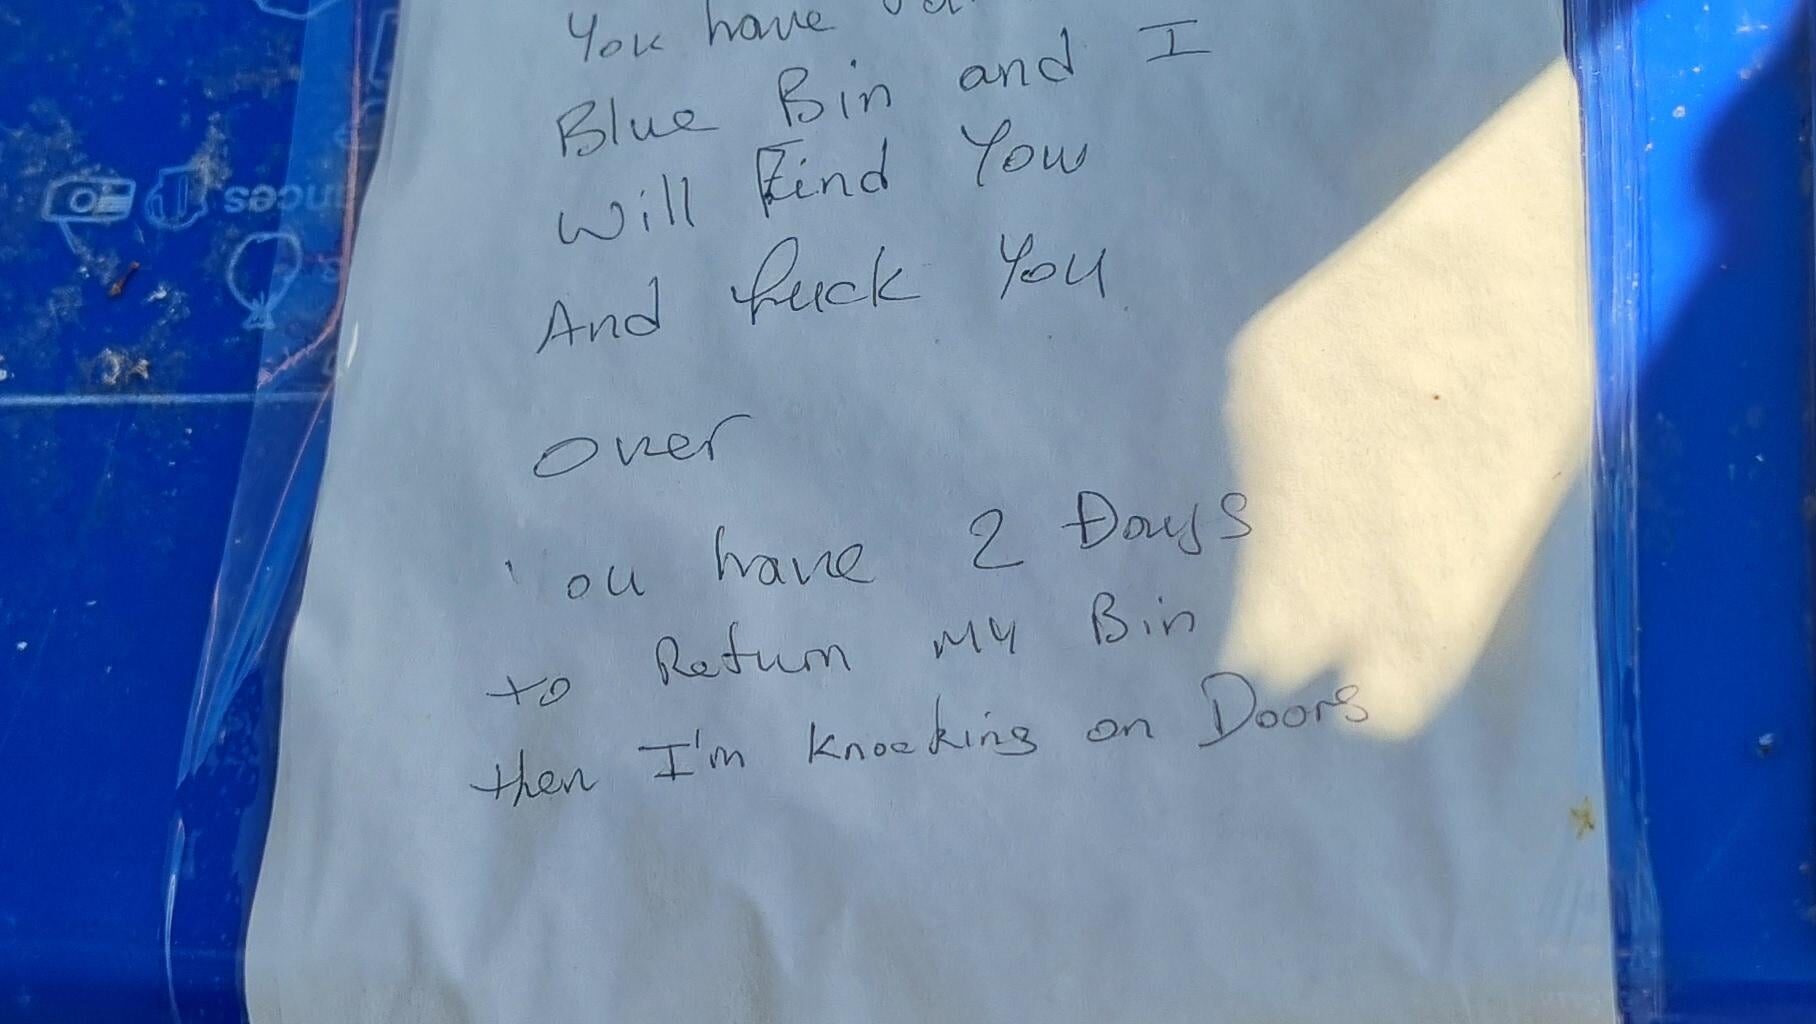 You have
Blue Bin and I
Will Find You
And fuck You
over
ou have 2 Days
to Return My Bin
then I'm knocking on Doors